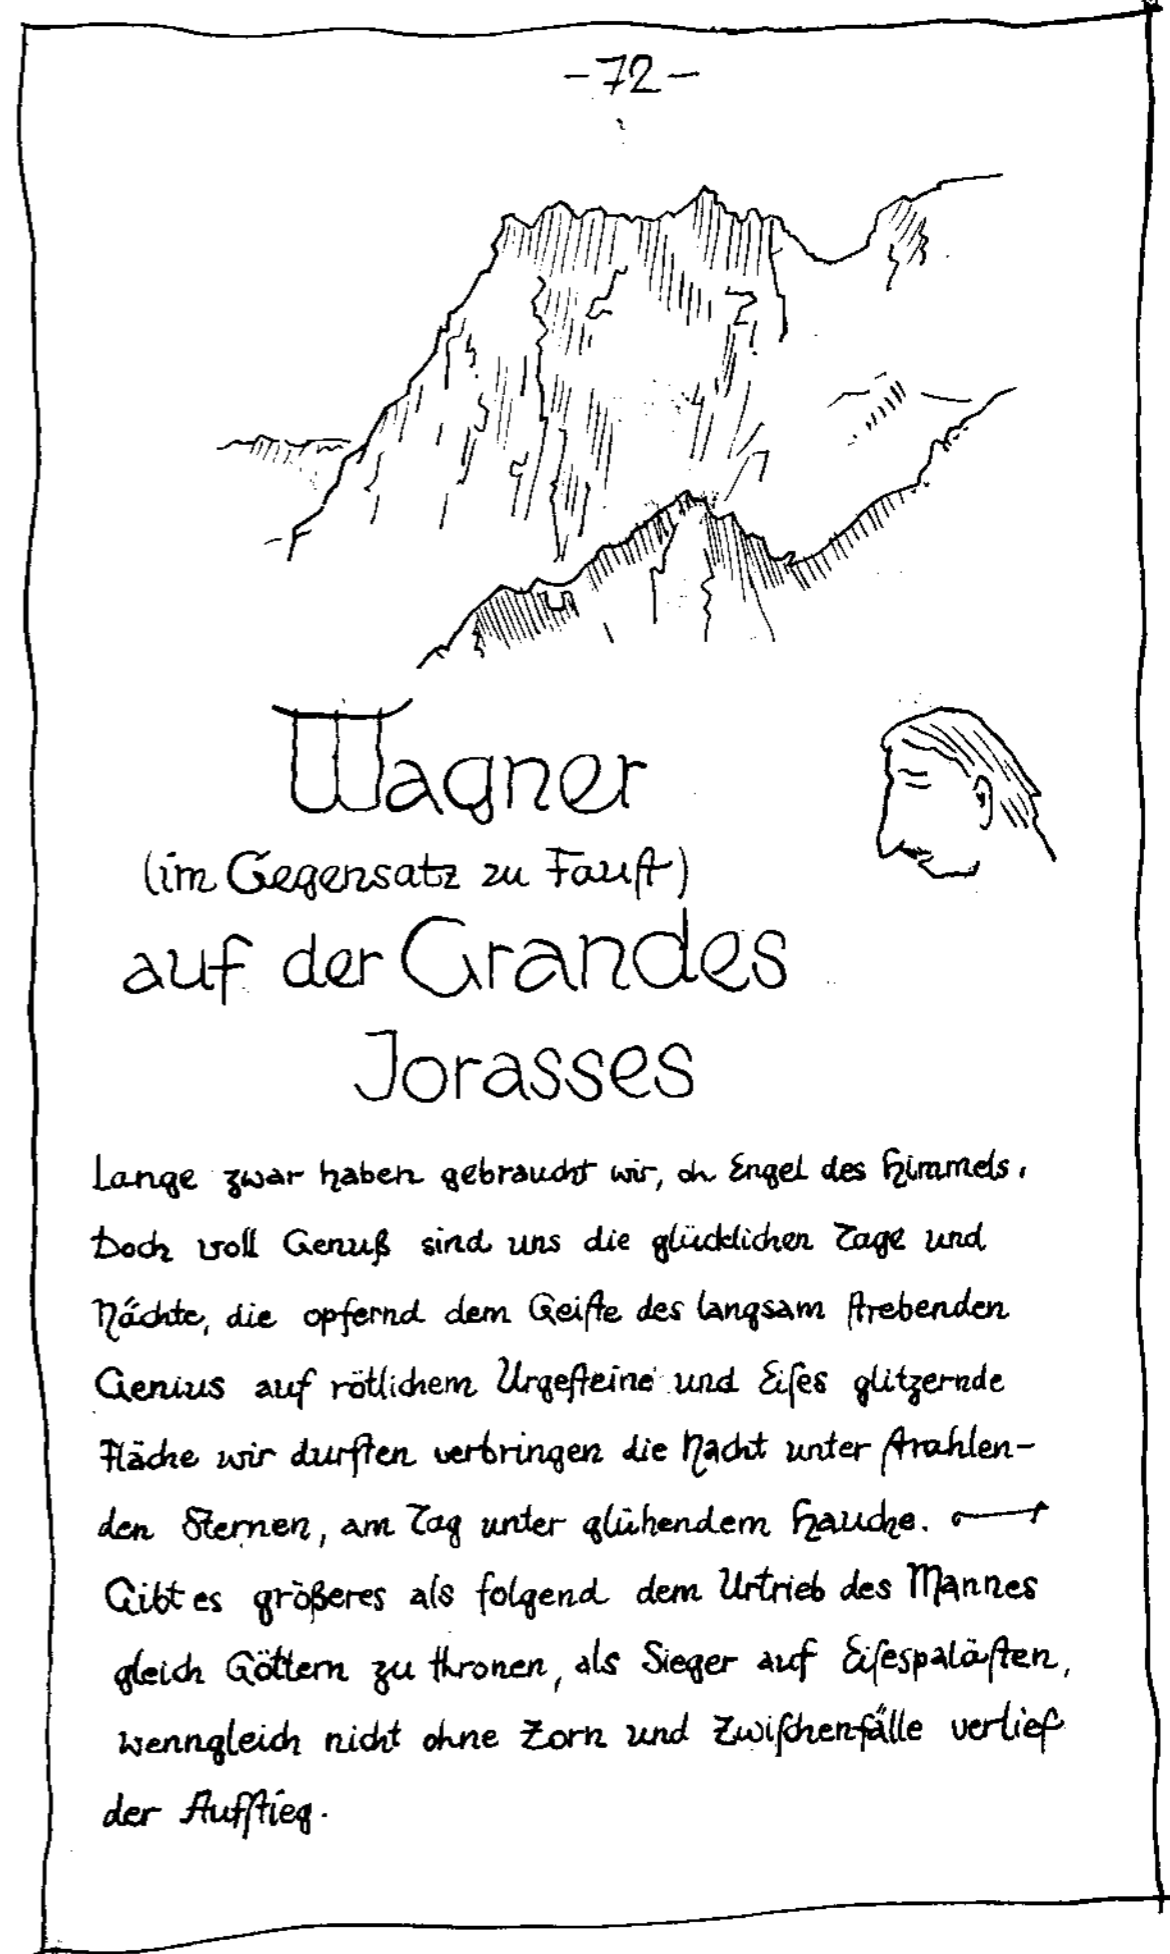 -72-
Wagner
(im Gegensatz zu Fauſt)
auf der Grandes
Jorasses
Lange zwar haben gebraucht wir, oh Engel des Himmels.
Doch voll Genuß sind uns die glücklichen Tage und
Nächte, die opfernd dem Geiſte des langsam ſtrebenden
Genius auf rötlichem Urgeſteine und Eiſes glitzernde
Fläche wir durften verbringen die Nacht unter ſtrahlen-
den Sternen, am Tag unter glühendem Hauche.
Gibt es größeres als folgend dem Urtrieb des Mannes
gleich Göttern zu thronen, als Sieger auf Eiſespaläſten,
wenngleich nicht ohne Zorn und Zwiſchenfälle verlief
der Aufſtieg.